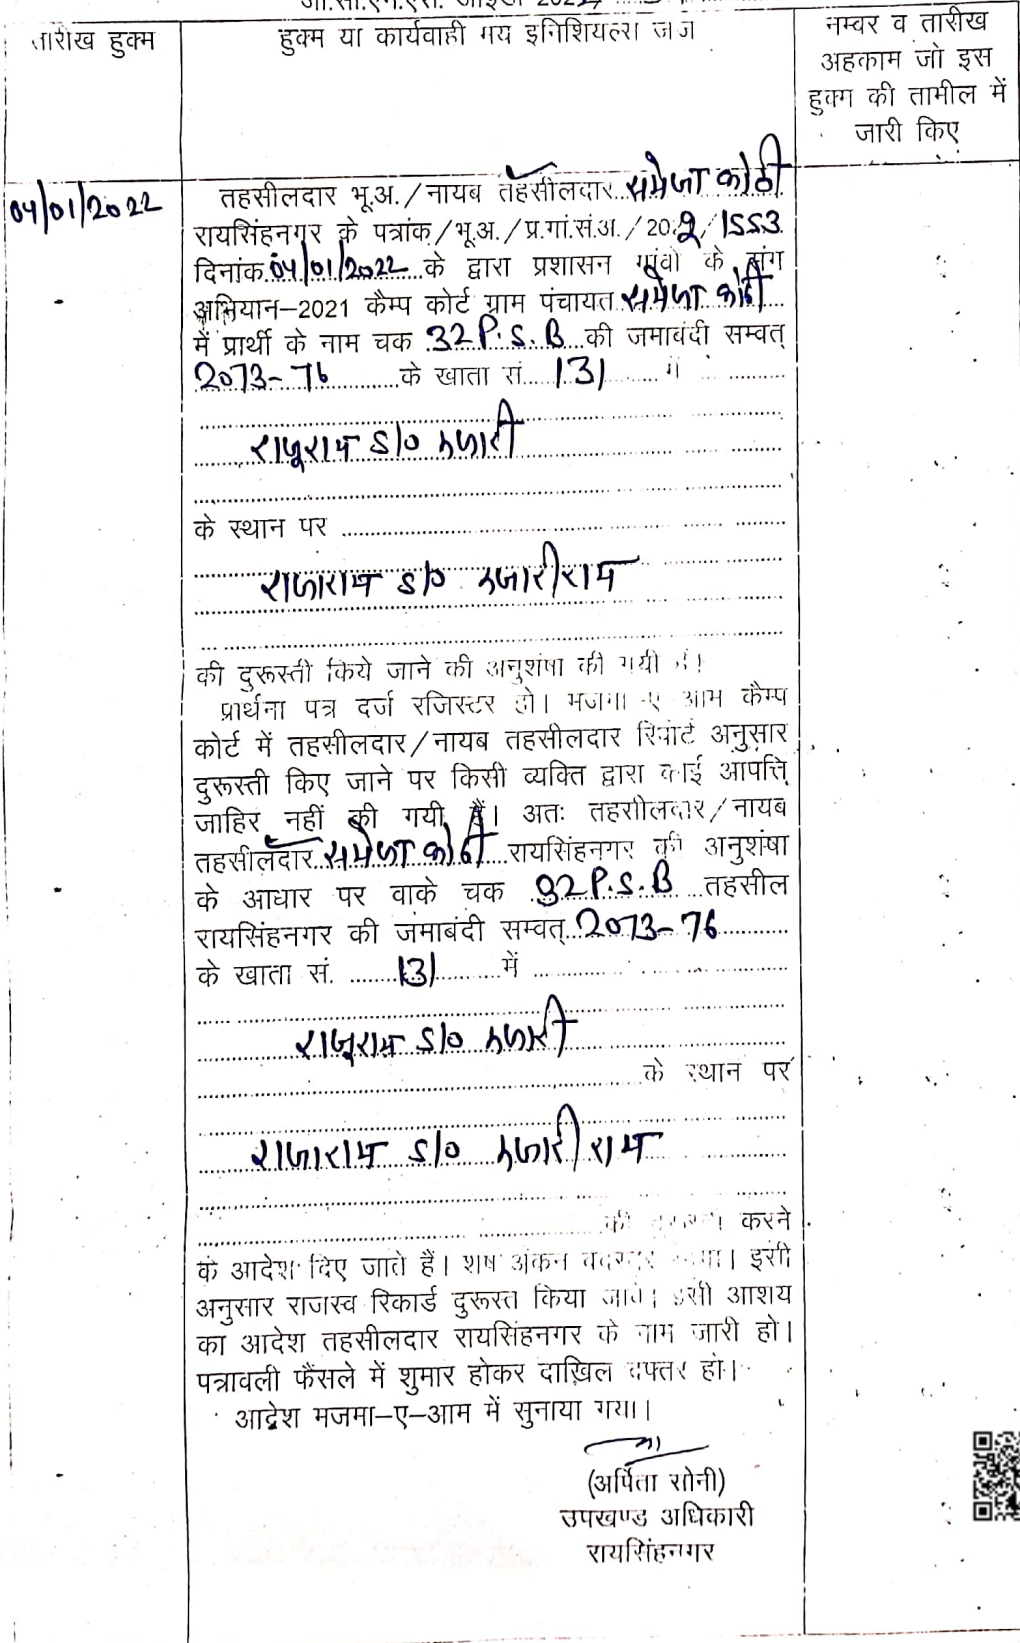 तारीख हुक्म
हुक्म या कार्यवाही मय इनिशियल्स जज
नम्बर व तारीख
अहकाम जो इस
हुक्म की तामील में
जारी किए
04/01/2022
तहसीलदार भू.अ./नायब तहसीलदार समेजा कोठी
रायसिंहनगर के पत्रांक/भू.अ./प्र.गां.सं.अ./202 /1553
दिनांक 04/01/2022 के द्वारा प्रशासन गांवो के संग
अभियान-2021 कैम्प कोर्ट ग्राम पंचायत समेजा कोठी
में प्रार्थी के नाम चक 32 P.S.B की जमाबंदी सम्वत्
2073-76 के खाता सं. 131 में
राजूराम S/O हजारी
के स्थान पर
राजाराम S/O हजारीराम
की दुरूस्ती किये जाने की अनुशंषा की गयी है।
प्रार्थना पत्र दर्ज रजिस्टर हो। मजमा-ए-आम कैम्प
कोर्ट में तहसीलदार/नायब तहसीलदार रिपोर्ट अनुसार
दुरूस्ती किए जाने पर किसी व्यक्ति द्वारा कोई आपत्ति
जाहिर नहीं की गयी है। अतः तहसीलदार/नायब
तहसीलदार समेजा कोठी रायसिंहनगर की अनुशंषा
के आधार पर वाके चक 32 P.S.B तहसील
रायसिंहनगर की जमाबंदी सम्वत् 2073-76
के खाता सं. 131 में
राजूराम S/O हजारी
के स्थान पर
राजाराम S/O हजारीराम
की करने
के आदेश दिए जाते हैं। शेष अंकन बदस्तूर । इसी
अनुसार राजस्व रिकार्ड दुरूस्त किया जावे। इसी आशय
का आदेश तहसीलदार रायसिंहनगर के नाम जारी हो।
पत्रावली फैंसले में शुमार होकर दाखिल दफ्तर हो।
आदेश मजमा-ए-आम में सुनाया गया।
(अर्पिता सोनी)
उपखण्ड अधिकारी
रायसिंहनगर